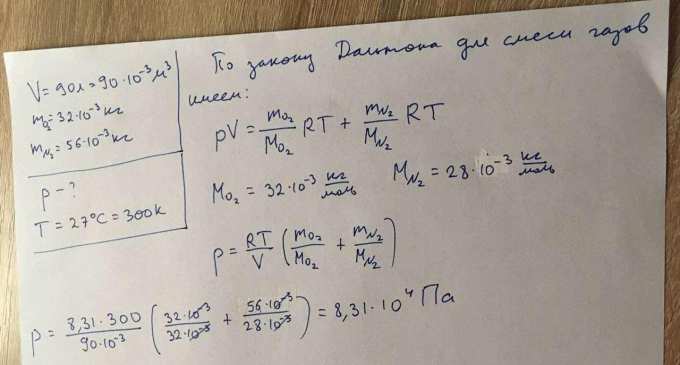 V = 90л = 90·10⁻³ м³
m_O₂ = 32·10⁻³ кг
m_N₂ = 56·10⁻³ кг
p - ?
T = 27°C = 300K
По закону Дальтона для смеси газов
имеем:
pV = m_O₂/M_O₂ RT + m_N₂/M_N₂ RT
M_O₂ = 32·10⁻³ кг/моль M_N₂ = 28·10⁻³ кг/моль
p = RT/V (m_O₂/M_O₂ + m_N₂/M_N₂)
p = 8,31·300/90·10⁻³ (32·10⁻³/32·10⁻³ + 56·10⁻³/28·10⁻³) = 8,31·10⁴ Па